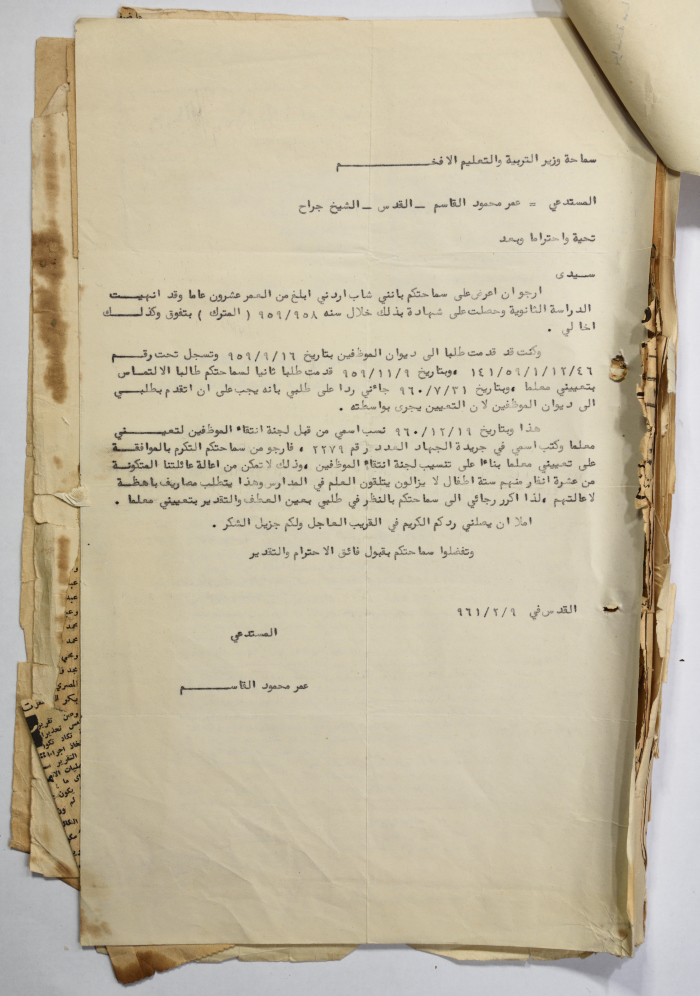 سماحة وزير التربية والتعليم الافخــــــــــــم
المستدعي = عمر محمود القاسم ــ القدس ــ الشيخ جراح
تحية واحتراما وبعد
سـيدى
ارجو ان اعرض على سماحتكم بانني شاب اردني ابلغ من العمر عشرون عاما وقد انهيـــت
الدراسة الثانوية وحصلت على شهادة بذلك خلال سنه ٩٥٩/٩٥٨ ( المترك ) بتفوق وكذلــــك
اخا لي .
وكنت قد قدمت طلبا الى ديوان الموظفين بتاريخ ٩٥٩/٩/١٦ وتسجل تحت رقـــم
١٤١/٥٩/١/١٢/٤٦ ،وبتاريخ ٩٥٩/١١/٩ قدمت طلبا ثانيا لسماحتكم طالبا الالتمـــاس
بتعييني معلما ،وبتاريخ ٩٦٠/٧/٣١ جاءني ردا على طلبي بانه يجب على ان اتقدم بطلبـــي
الى ديوان الموظفين لان التعيين يجرى بواسطته .
هذا وبتاريخ ٩٦٠/١٢/١٩ نسب اسمي من قبل لجنة انتقاء الموظفين لتعيينـــي
معلما وكتب اسمي في جريدة الجهاد العدد رقم ٢٢٧٩ ، فارجو من سماحتكم التكرم بالموافقـــة
على تعييني معلما بناءا على تنسيب لجنة انتقاء الموظفين ،وذلك لاتمكن من اعالة عائلتنا المتكونة
من عشرة انفار منهم ستة اطفال لا يزالون يتلقون العلم في المدارس وهذا يتطلب مصاريف باهظـــة
لاعالتهم ،لذا اكرر رجائي الى سماحتكم بالنظر في طلبي بعين العطف والتقدير بتعييني معلما .
املا ان يصلني ردكم الكريم في القريب العاجل ولكم جزيل الشكر .
وتفضلوا سماحتكم بقبول فائق الاحترام والتقدير
القدس في ٩٦١/٢/٩
المستدعي
عمر محمود القاســــــم